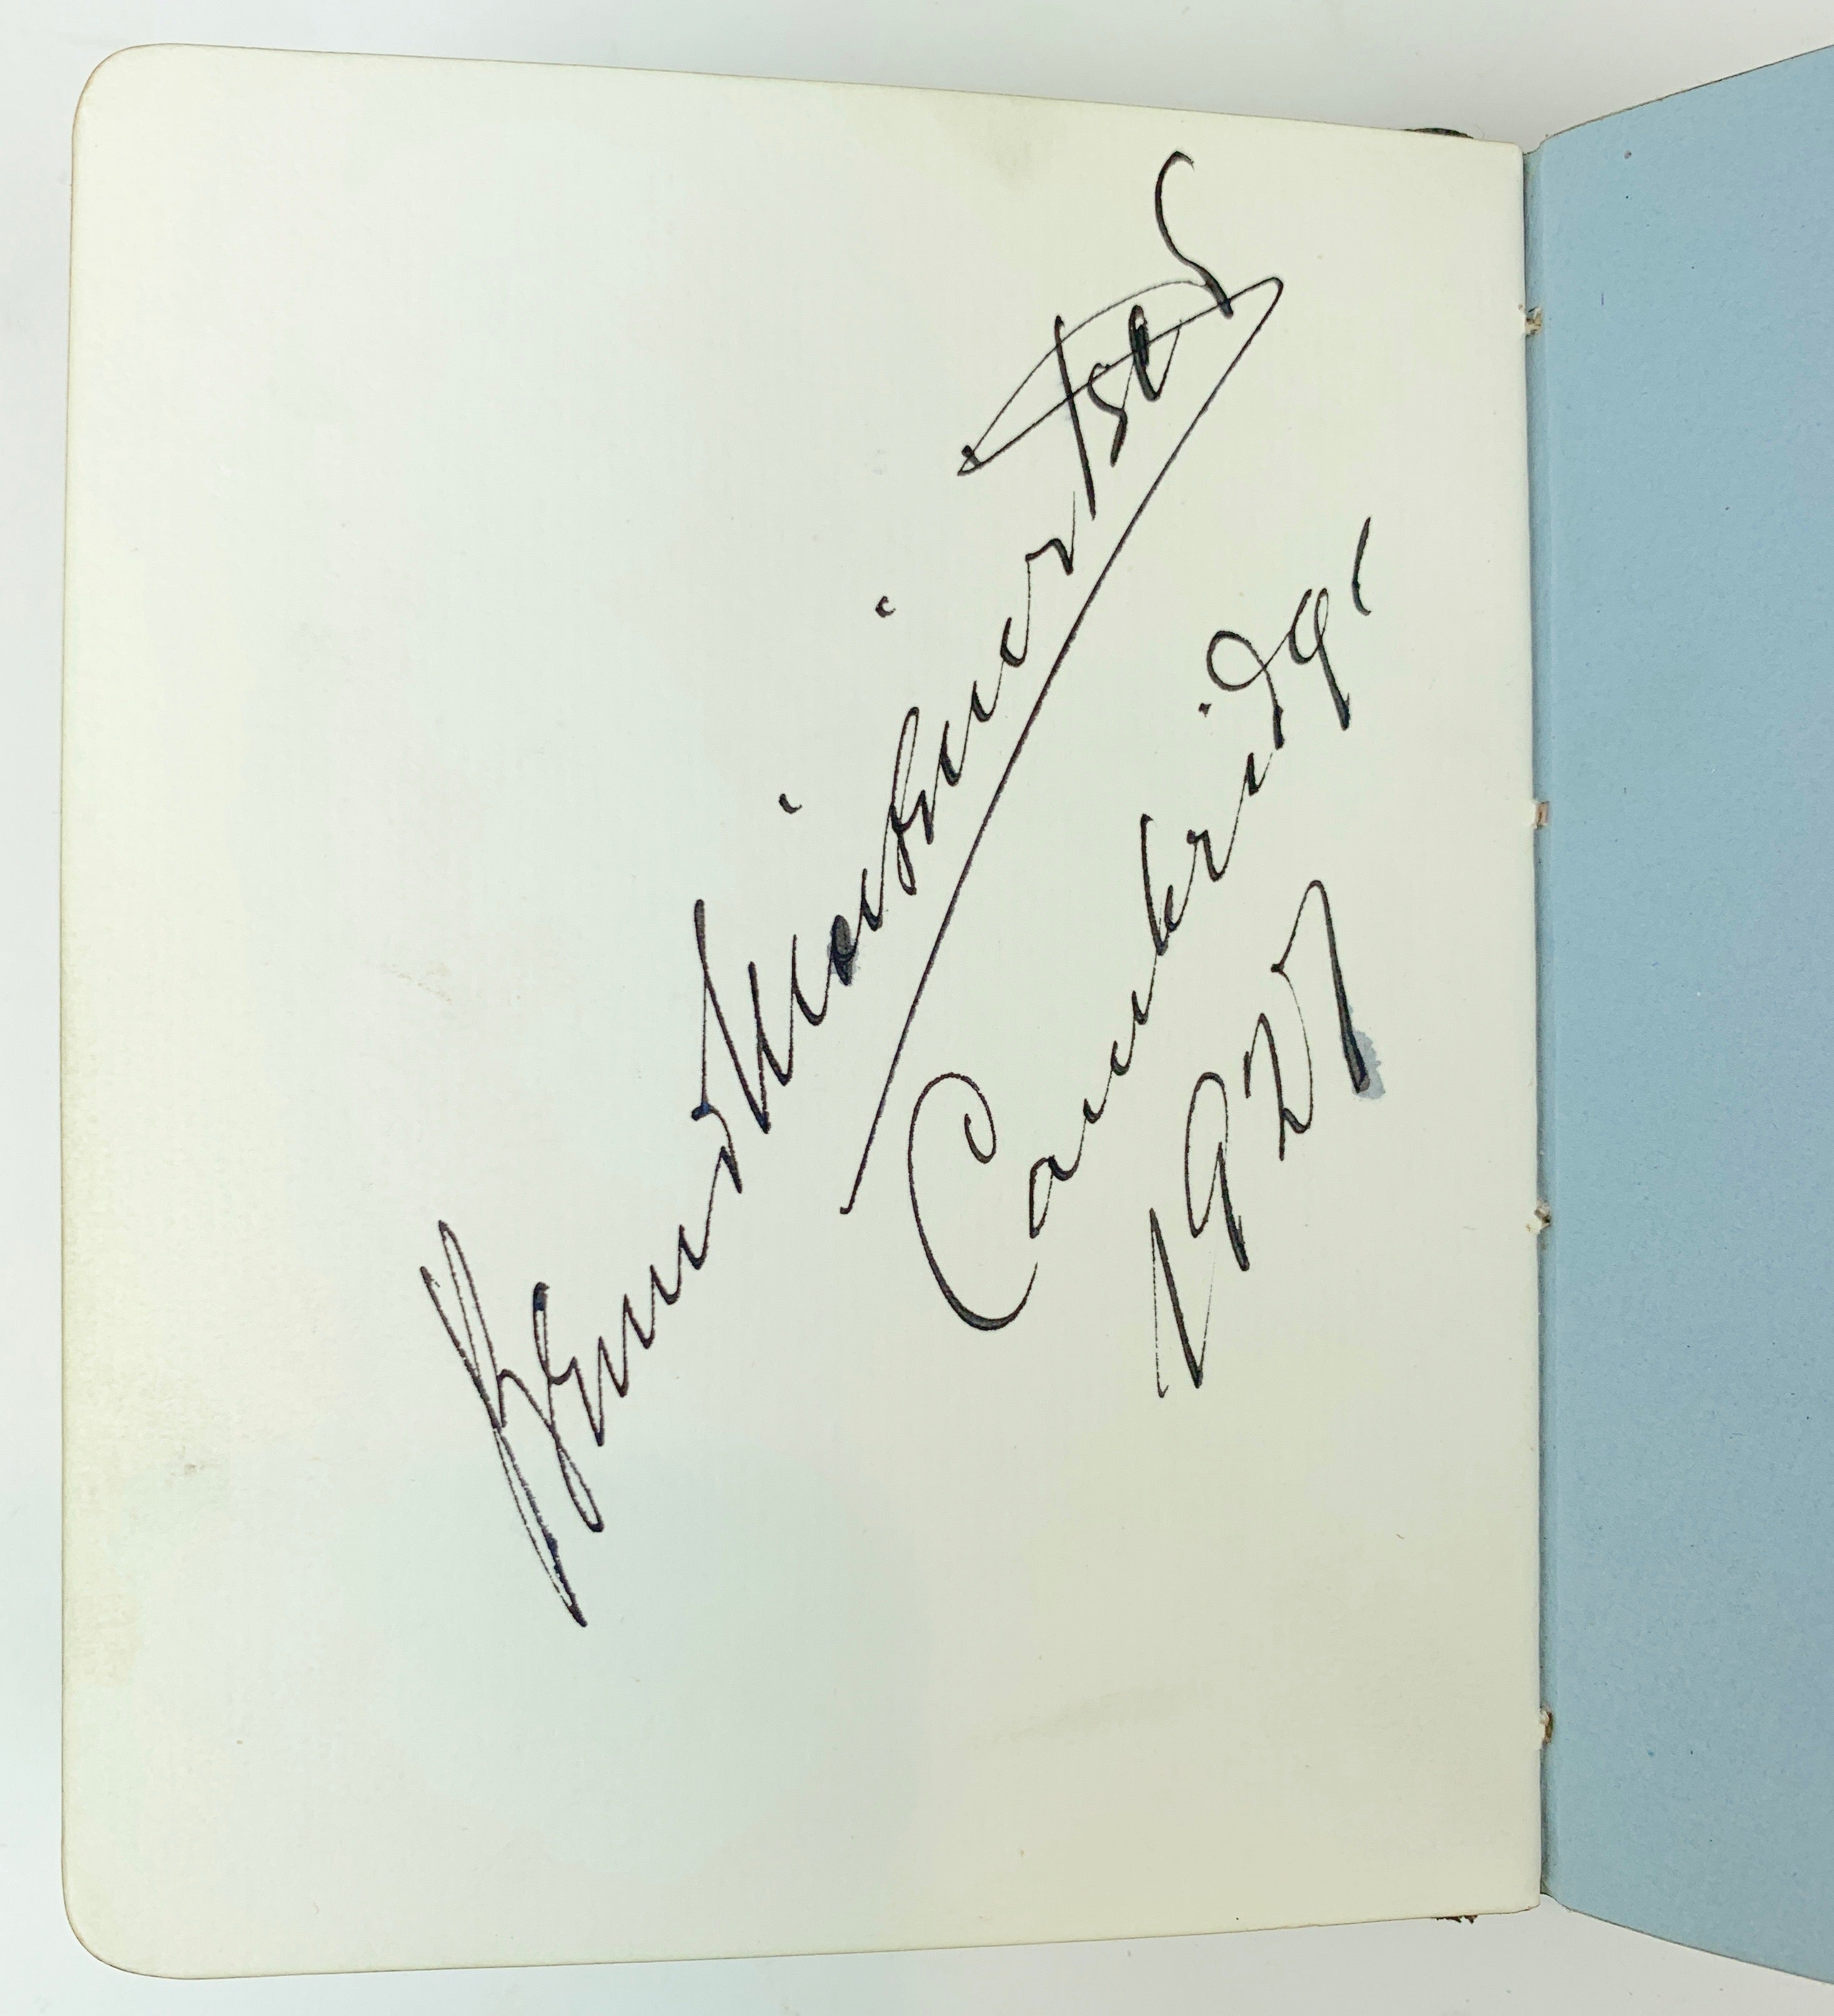 Benno Moiseiwitsch
Cambridge
1927